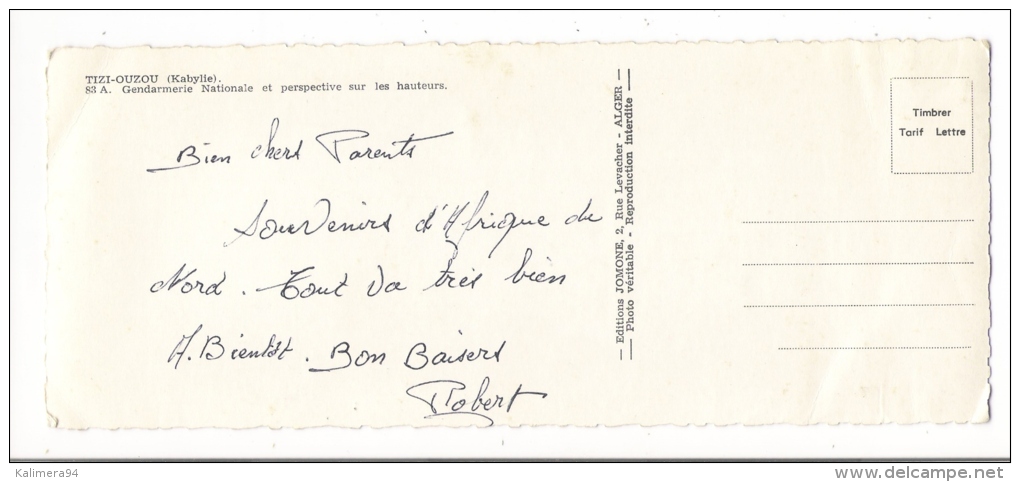 TIZI-OUZOU (Kabylie).
83 A. Gendarmerie Nationale et perspective sur les hauteurs.
Bien chers Parents
Souvenirs d'Afrique du
Nord. Tout va très bien
A. Bientôt. Bon Baisers
Robert
— Editions JOMONE, 2, Rue Levacher - ALGER —
— Photo véritable - Reproduction interdite —
Timbrer
Tarif Lettre
Kalimera94
www.delcampe.net